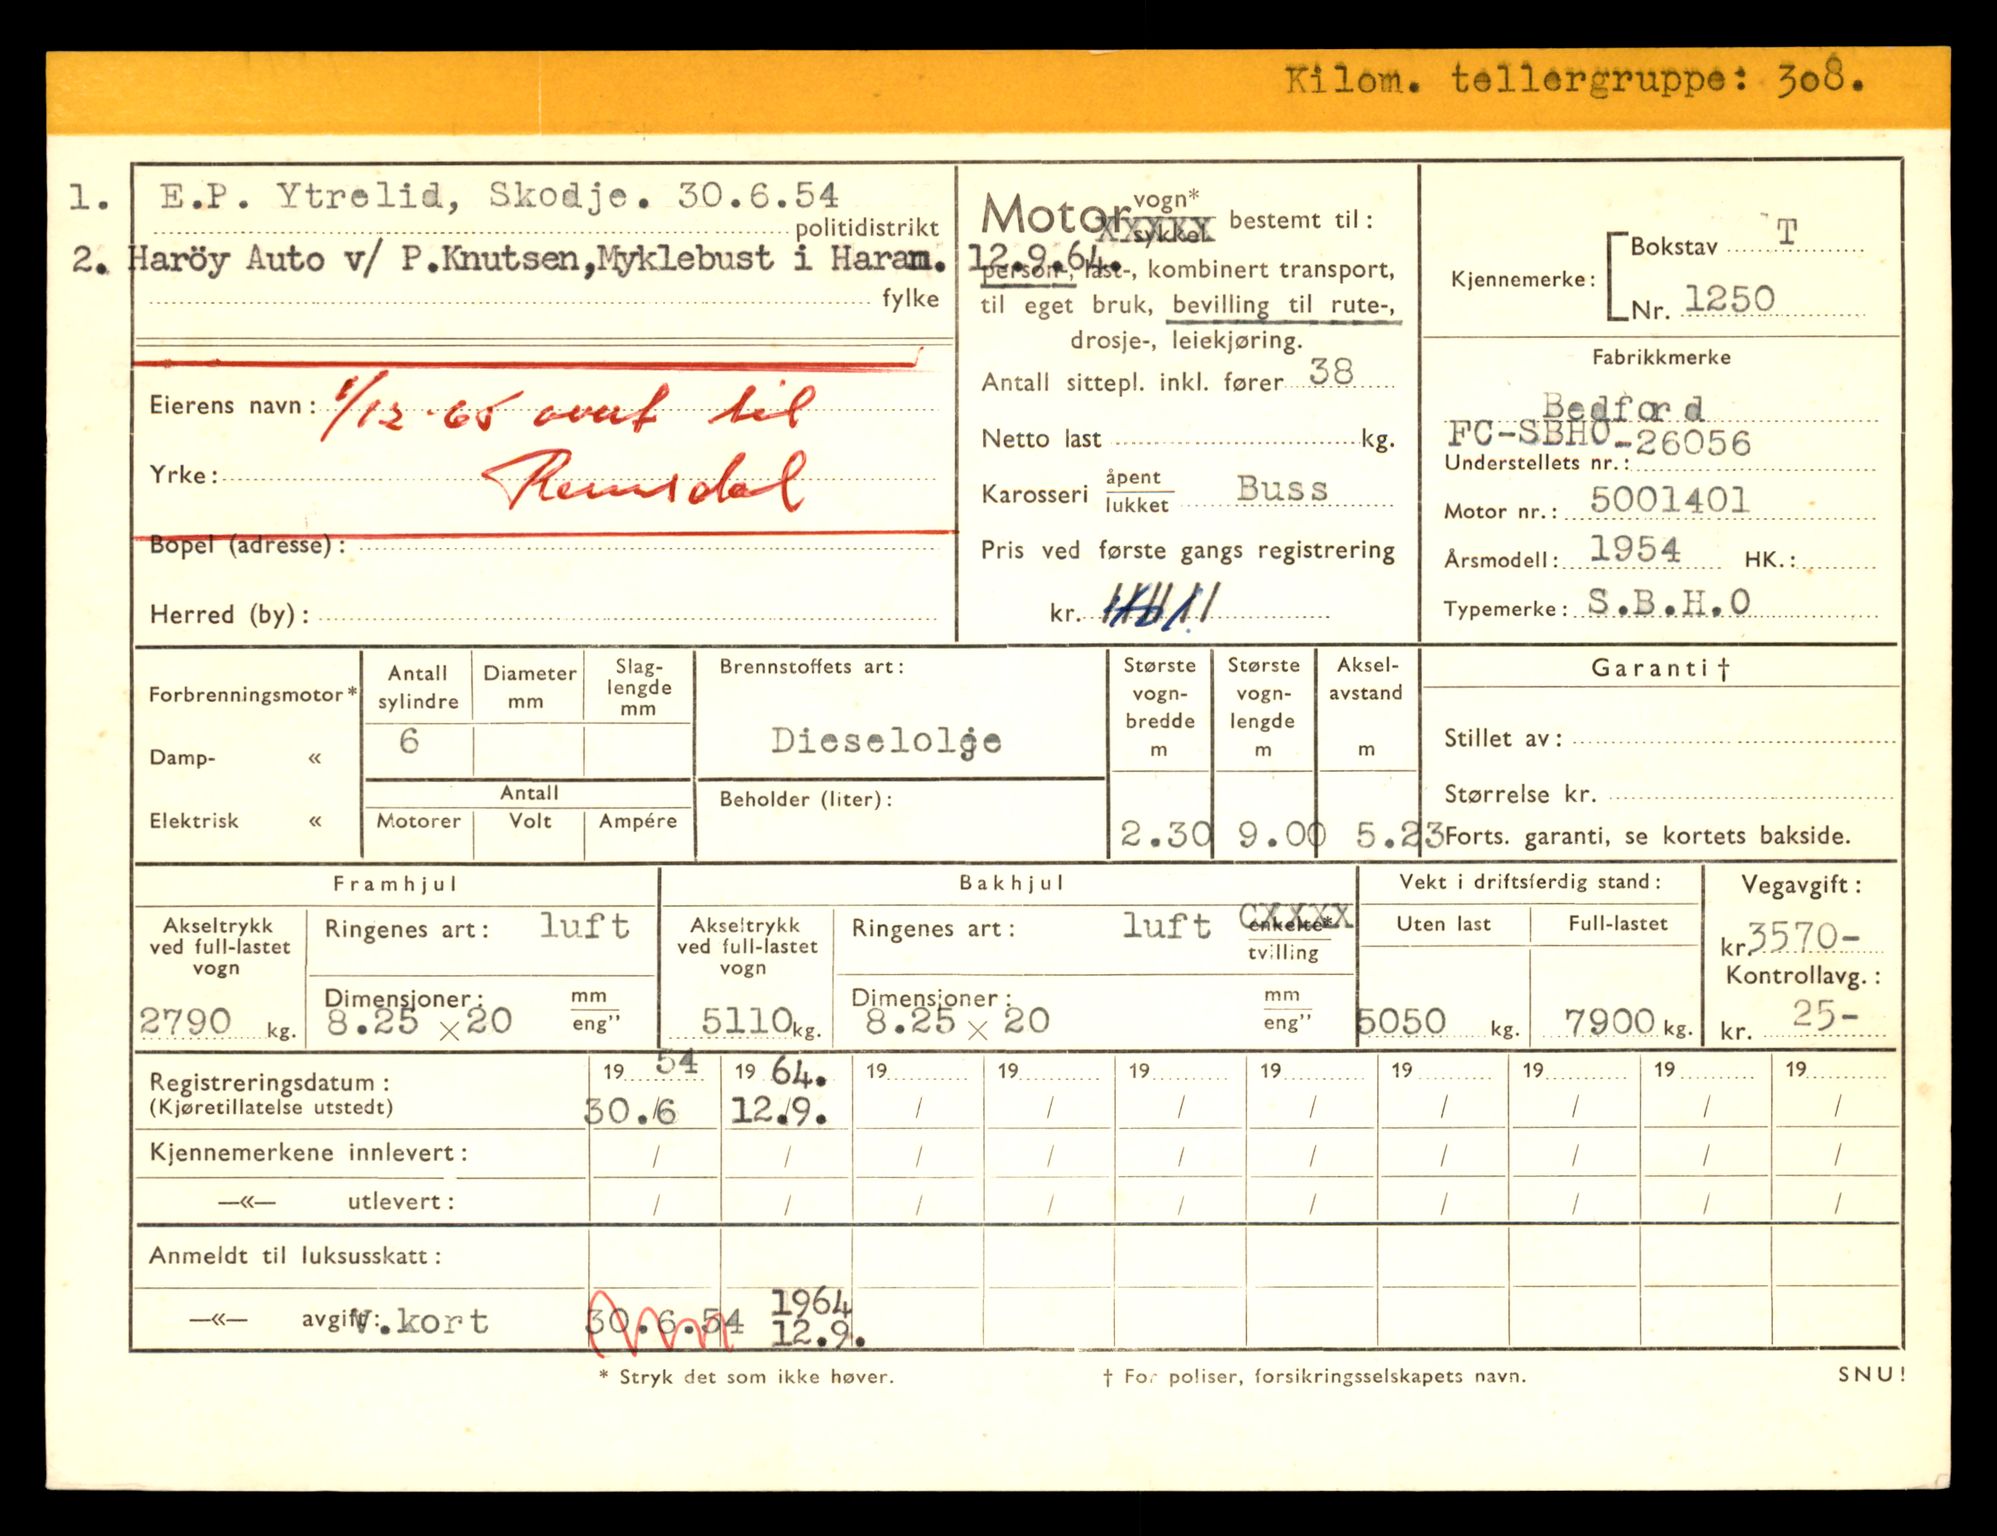 Kilom. tellergruppe: 308.
1. E.P. Ytrelid, Skodje. 30.6.54
politidistrikt
2. Haröy Auto v/ P.Knutsen,Myklebust i Haram. 12.9.64.
fylke
Eierens navn: 1/12-65 overf til
Yrke: Romsdal
Bopel (adresse):
Herred (by):
Motor vogn* sykkel XXXXX bestemt til:
person-, last-, kombinert transport,
til eget bruk, bevilling til rute-,
drosje-, leiekjøring.
Antall sittepl. inkl. fører 38
Netto last kg.
Karosseri åpent lukket Buss
Pris ved første gangs registrering
kr.
Kjennemerke: Bokstav T
Nr. 1250
Fabrikkmerke
Bedford
FC-SBHO-26056
Understellets nr.:
Motor nr.: 5001401
Årsmodell: 1954 HK.:
Typemerke: S.B.H.O
Forbrenningsmotor*
Damp- «
Elektrisk «
Antall sylindre
6
Diameter mm
Slag-lengde mm
Antall
Motorer Volt Ampére
Brennstoffets art:
Dieselolje
Beholder (liter):
Største vogn-bredde m
2.30
Største vogn-lengde m
9.00
Aksel-avstand m
5.23
Garanti †
Stillet av:
Størrelse kr.
Forts. garanti, se kortets bakside.
Framhjul
Akseltrykk ved full-lastet vogn
2790 kg.
Ringenes art: luft
Dimensjoner: mm eng”
8.25 x 20
Bakhjul
Akseltrykk ved full-lastet vogn
5110 kg.
Ringenes art: luft enkelte* CXXXX tvilling
Dimensjoner: mm eng”
8.25 x 20
Vekt i driftsferdig stand:
Uten last Full-lastet
5050 kg. 7900 kg.
Vegavgift:
kr. 3570-
Kontrollavg.:
kr. 25-
Registreringsdatum: 19 54 19 64. 19 19 19 19 19 19 19 19
(Kjøretillatelse utstedt) 30./6 12./9. / / / / / / / /
Kjennemerkene innlevert: / / / / / / / / / /
—«— utlevert: / / / / / / / / / /
Anmeldt til luksusskatt:
—«— avgift: V.kort 30.6.54 1964 12.9.
* Stryk det som ikke høver. † For poliser, forsikringsselskapets navn. SNU!